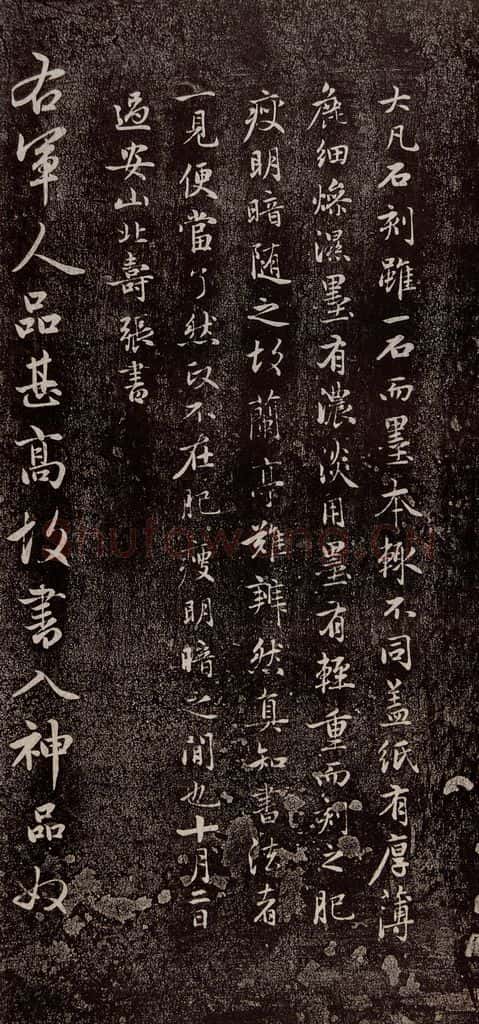 大凡石刻雖一石而墨本輙不同盖紙有厚薄
麁細燥濕墨有濃淡用墨有輕重而刻之肥
瘦明暗随之故蘭亭難辨然真知書法者
一見便當了然政不在肥瘦明暗之間也十月二日
過安山北壽張書
右軍人品甚高故書入神品奴
shufawang.cn